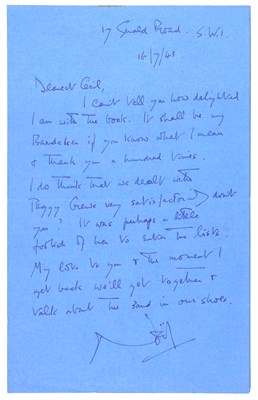 17 Gerald Road. S.W.1.
16/7/43
Dearest Cecil,
I can't tell you how delighted
I am with the book. It shall be my
if you know what I mean
& thank you a hundred times.
I do think that we dealt with
Peggy very satisfactorily don't
you? It was perhaps a little
foolish of her to enter the lists
My love to you & the moment I
get back we'll get together &
talk about the sand in our shoes.
Noël